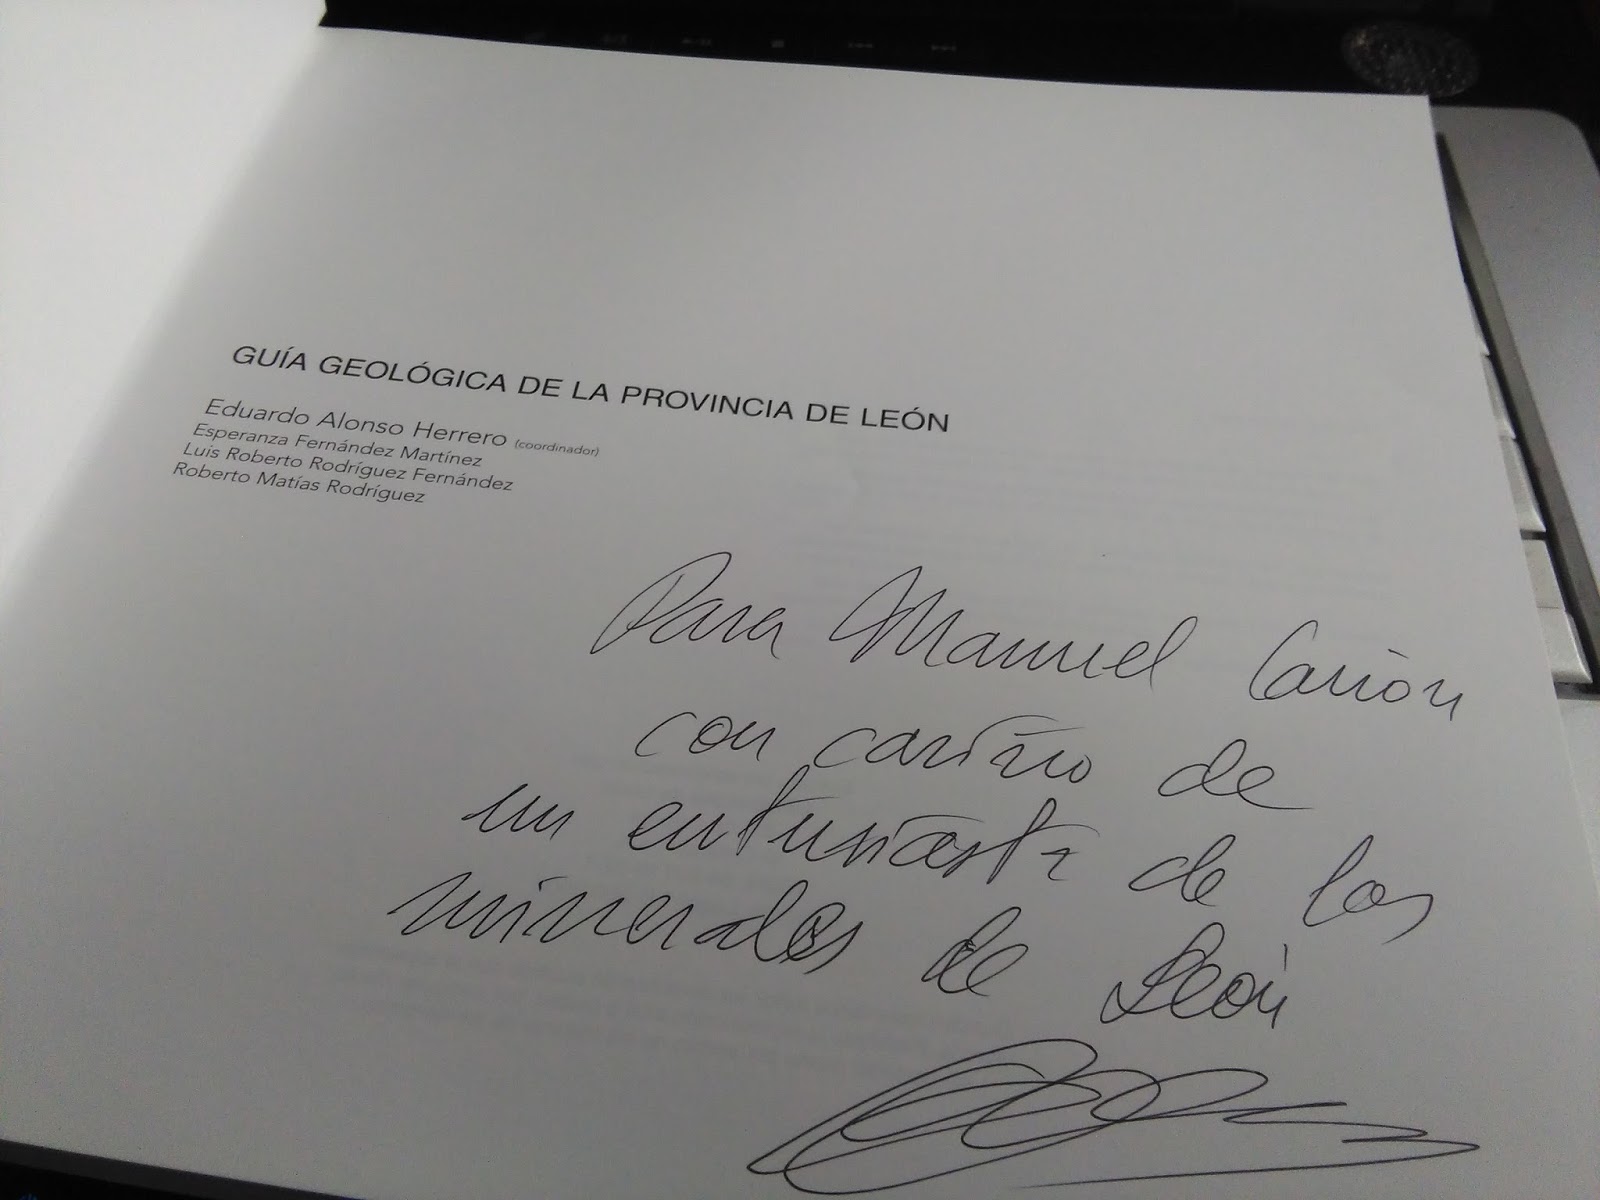 GUÍA GEOLÓGICA DE LA PROVINCIA DE LEÓN
Eduardo Alonso Herrero (coordinador)
Esperanza Fernández Martínez
Luis Roberto Rodríguez Fernández
Roberto Matías Rodríguez
Para Manuel Carrión
con cariño de
un entusiasta de los
minerales de León